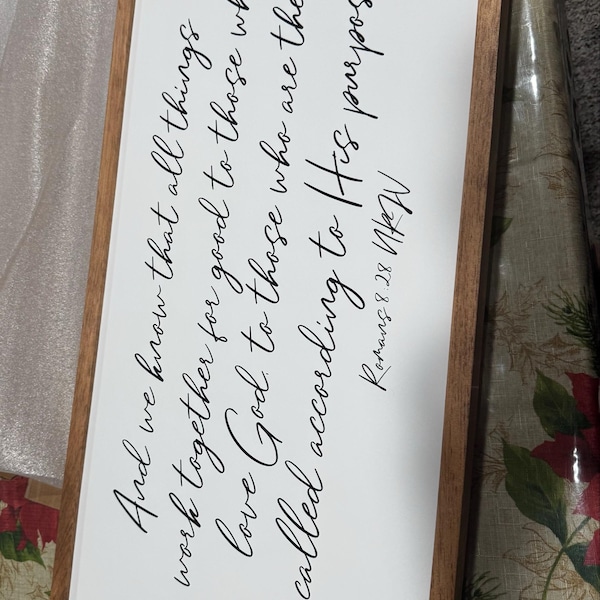 And we know that all things
work together for good to those wh
love God, to those who are the
called according to His purpos
Romans 8:28 NKJV